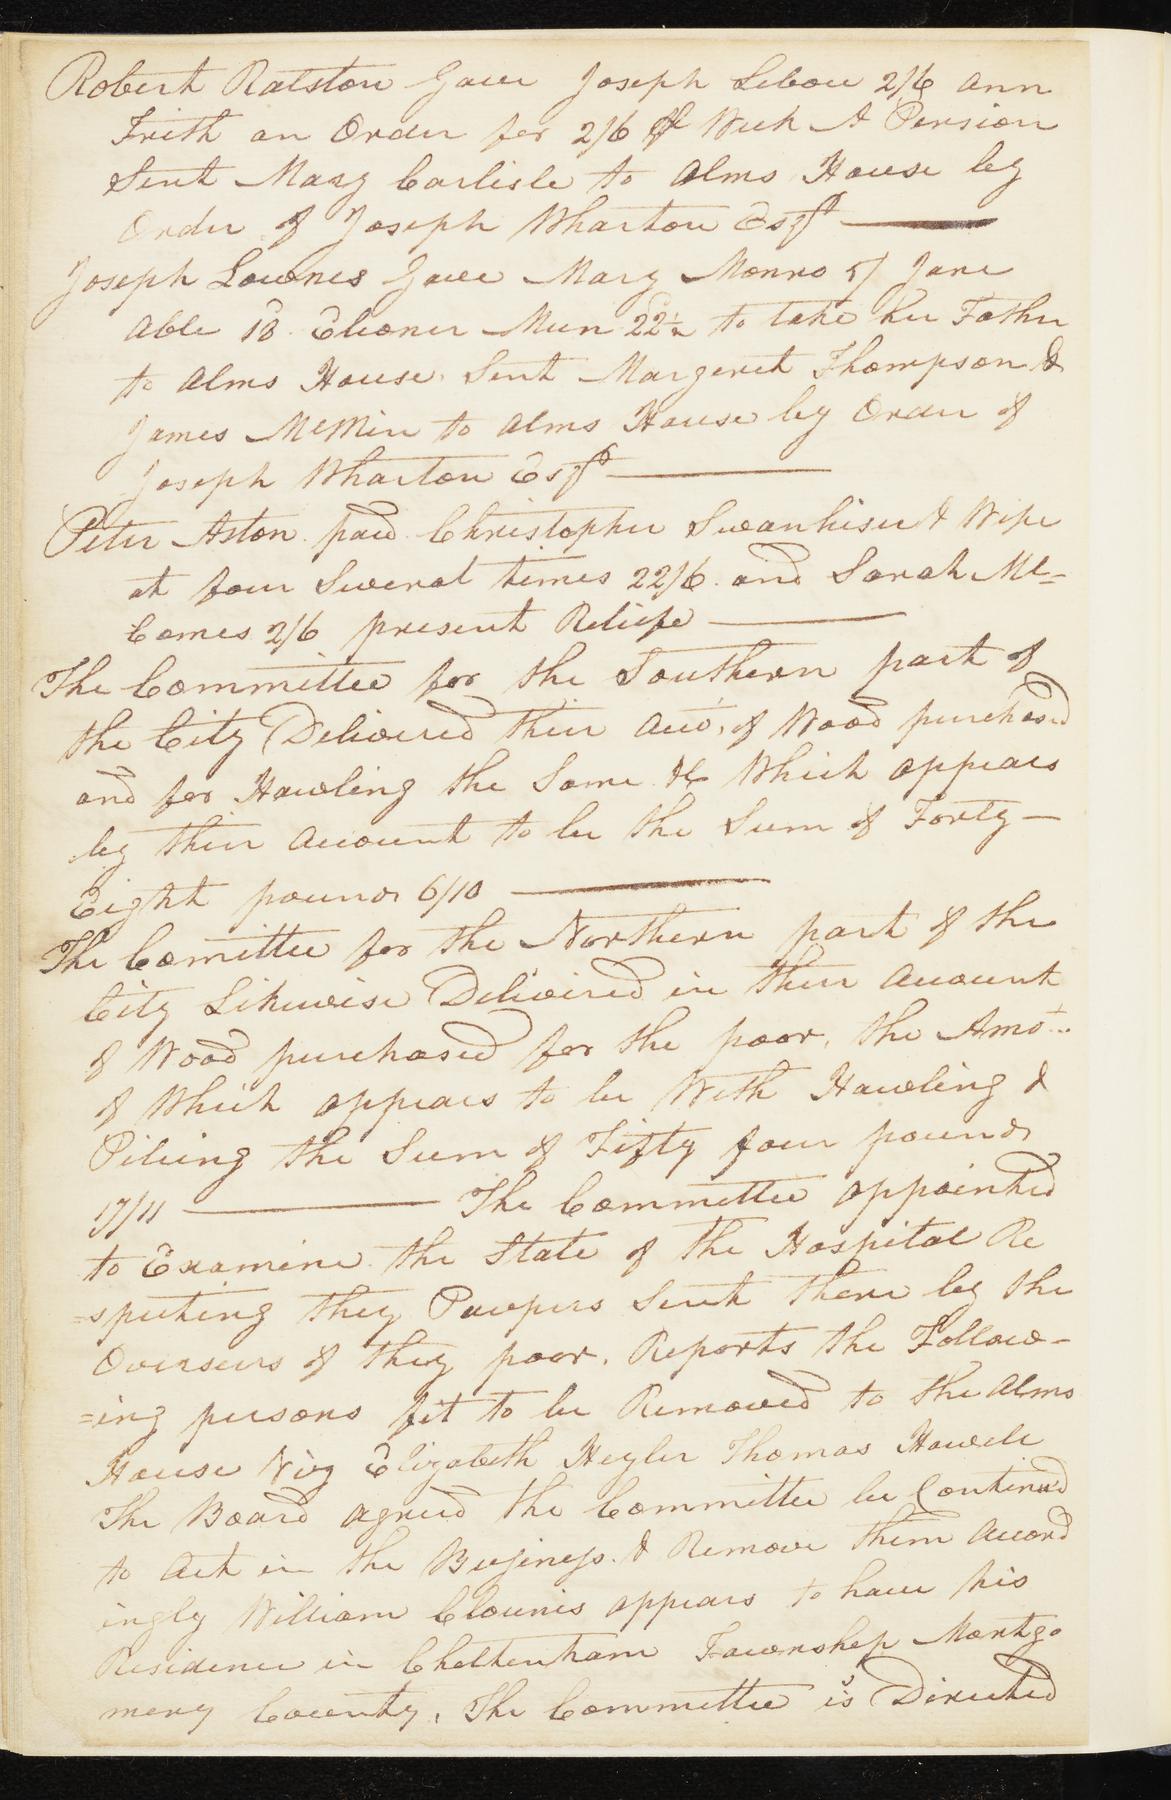 Robert Ralston Gave Joseph Lebou 2/6 Ann
Frith an Order for 2/6 Week A Pension
Sent Mary Carlisle to Alms House by
Order of Joseph Wharton Esqr
Joseph Lownes Gave Mary Monro 5/ Jane
Able 18 Elioner Mun 22½ to take her Father
to Alms House. Sent Margeret Thompson &
James McMin to Alms House by Order of
Joseph Wharton Esqr
Peter Aston paid Christopher Swanhiser & Wife
at four Several times 22/6 and Sarah Mc=
Comes 2/6 present Reliefe
The Committee for the Southern part of
the City Delivered their Acco. of Wood purchased
and for Hawling the Same &c Which appears
by their Account to be the Sum of Forty
Eight pounds 6/10
The Comittee for the Northern part of the
City Likewise Delivered in their Account
of Wood purchased for the poor. the Amot..
of Which appears to be With Hawling &
Pileing the Sum of Fifty four pounds
17/11 The Committee appointed
to Examine the State of the Hospital Re
=specting they Pawpers Sent there by the
Overseers of they poor. Reports the Follow=
=ing persons fit to be Removed to the Alms
House Viz Elizabeth Heyler Thomas Howele
The Board agreed the Committee be Continued
to Act in the Busjness & Remove them Accord
ingly William Clownis appears to have his
Residence in Cheltenham Township Montgo
mery County. The Committee is Directed